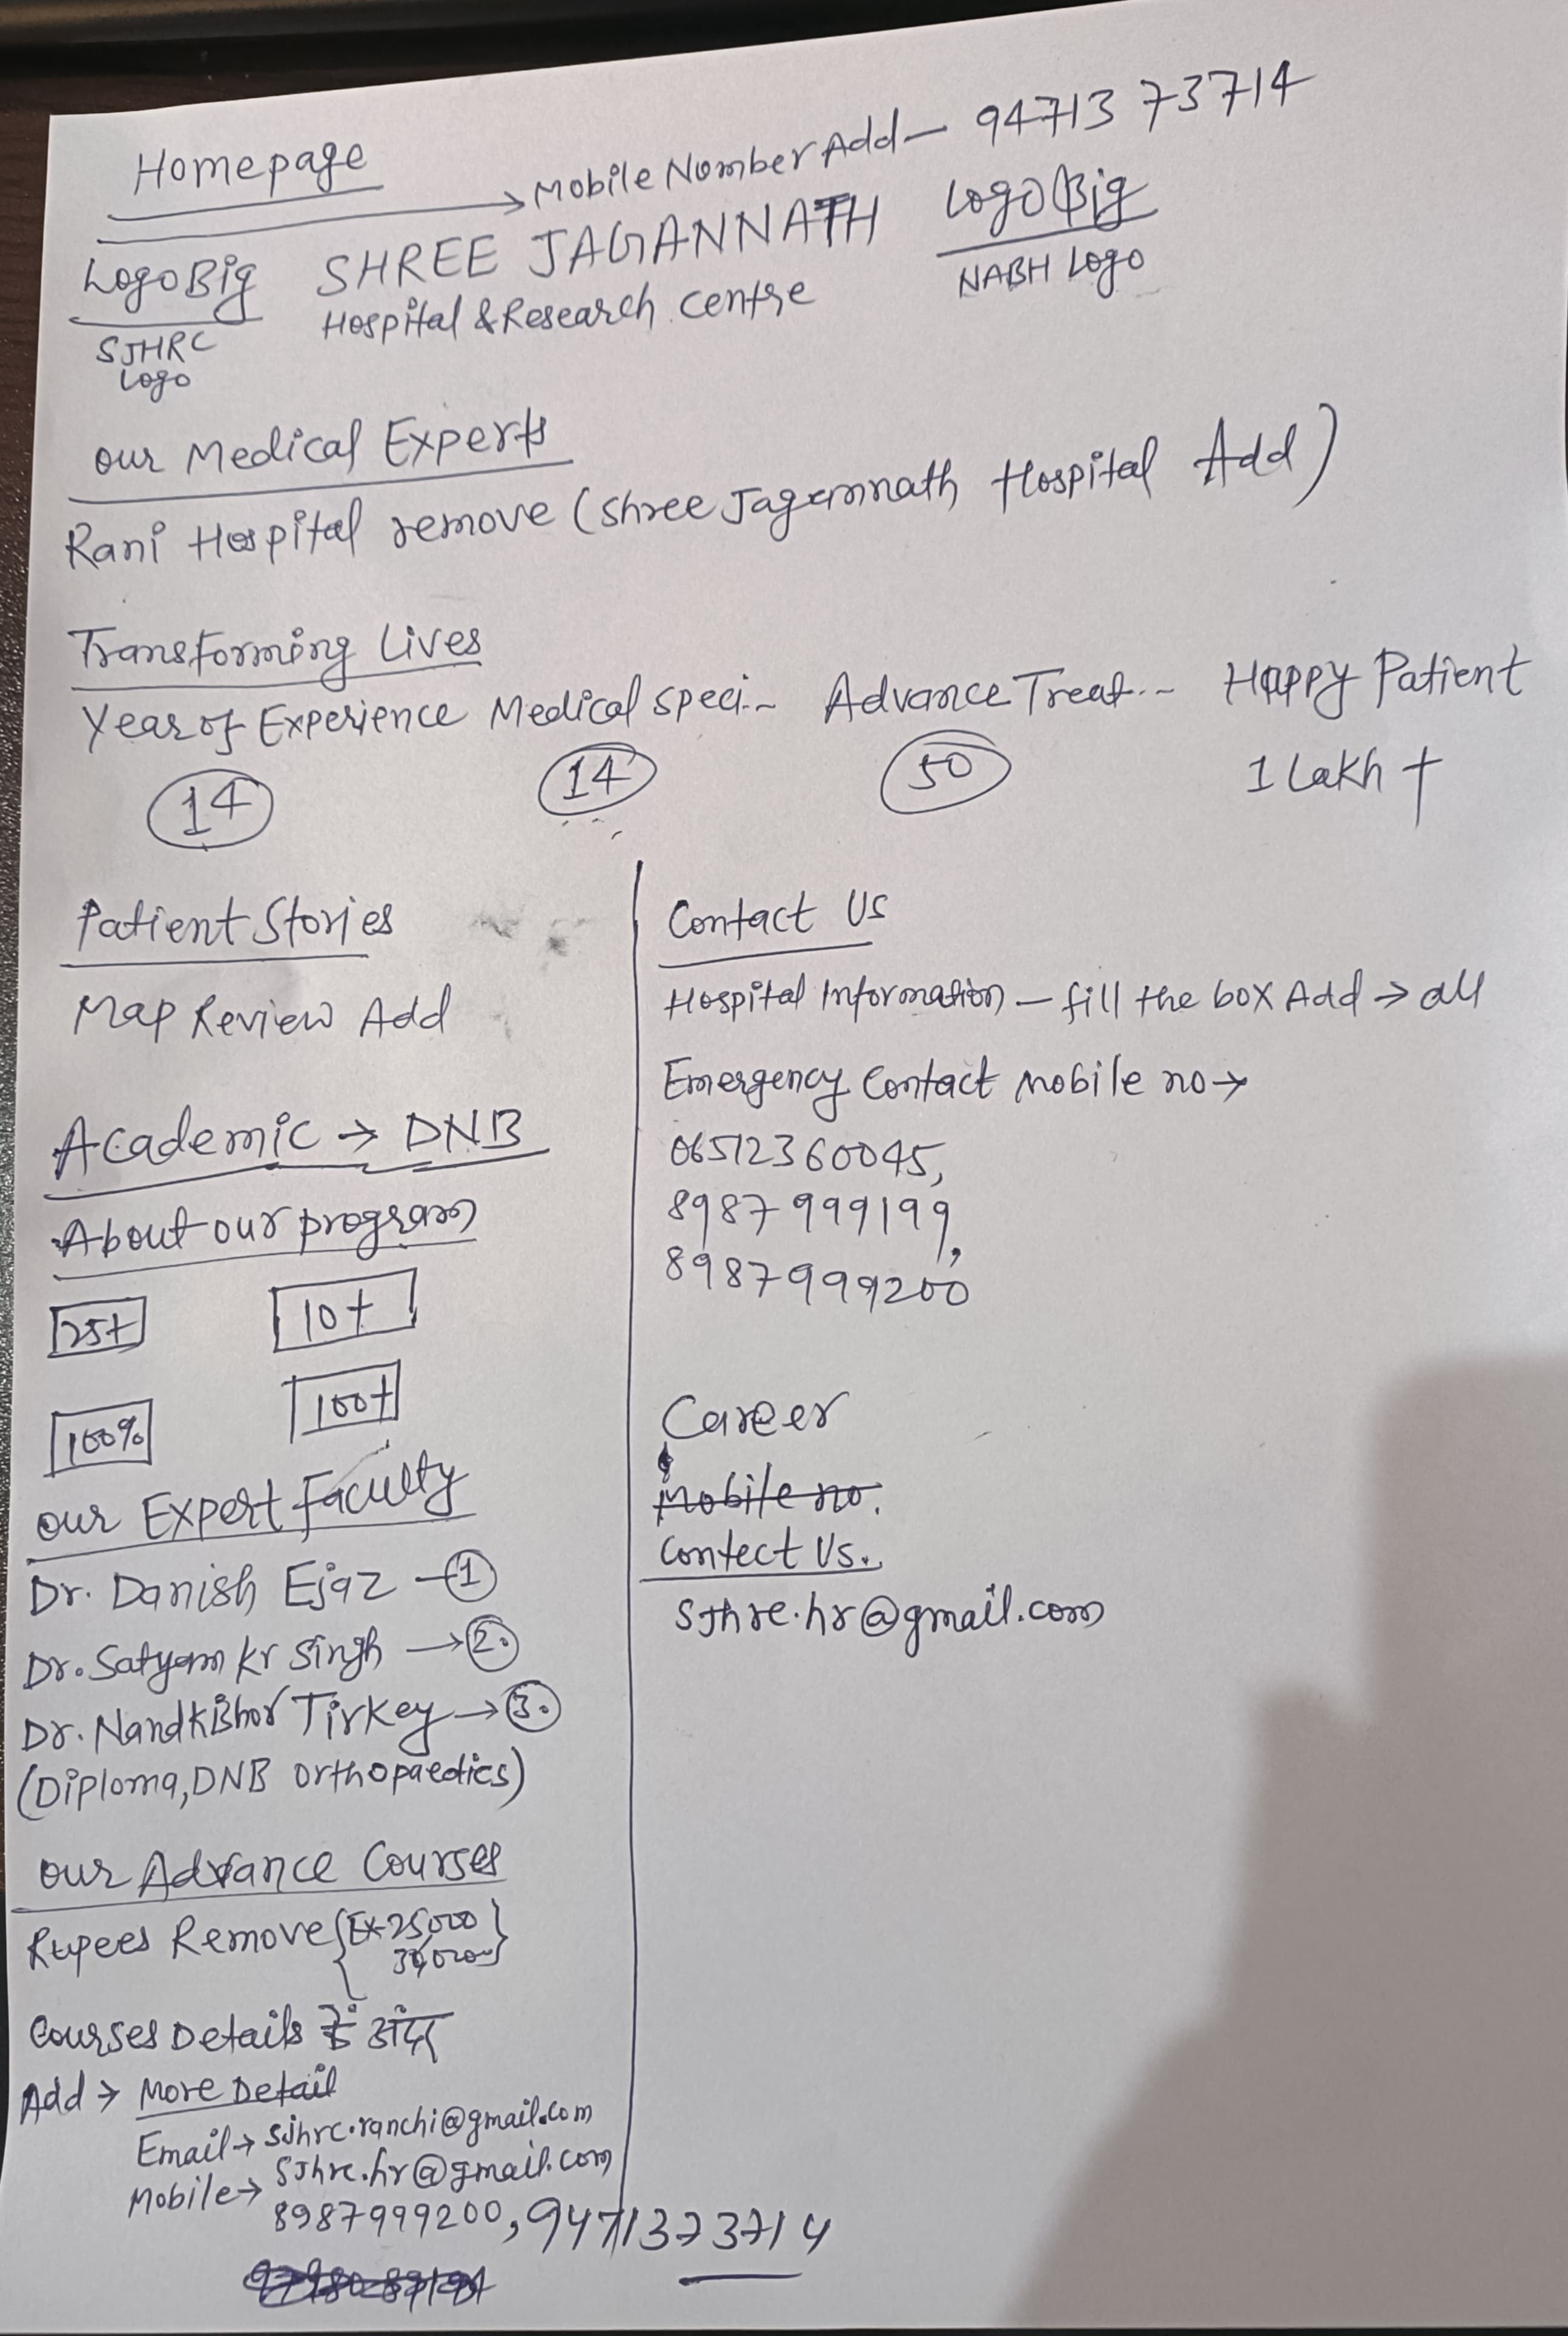 Homepage
→ Mobile Nomber Add - 94713 73714
Logo Big SHREE JAGANNATH Logo Big
SJHRC Hospital & Research centre NABH Logo
Logo
our Medical Experts
Rani Hospital remove (Shree Jagannath Hospital Add)
Transforming Lives
Year of Experience Medical speci... Advance Treat... Happy Patient
14 14 50 1 Lakh +
Patient Stories
Map Review Add
Academic → DNB
About our program
25+ 10+
100% 100+
our Expert faculty
Dr. Danish Ejaz - 1
Dr. Satyam Kr Singh → 2.
Dr. Nandkishor Tirkey → 3.
(Diploma, DNB orthopaedics)
our Advance Courses
Rupees Remove {Ex- 25,000
30,000}
Courses Details के अंदर
Add → More Detail
Email → sjhrc.ranchi@gmail.com
SJhrc.hr@gmail.com
Mobile →
8987999200, 9471373714
Contact Us
Hospital Information - fill the box Add → all
Emergency Contact mobile no →
06512360045,
8987 999199,
8987999200
Career
Mobile no.
Contect Us.
SJhrc.hr@gmail.com